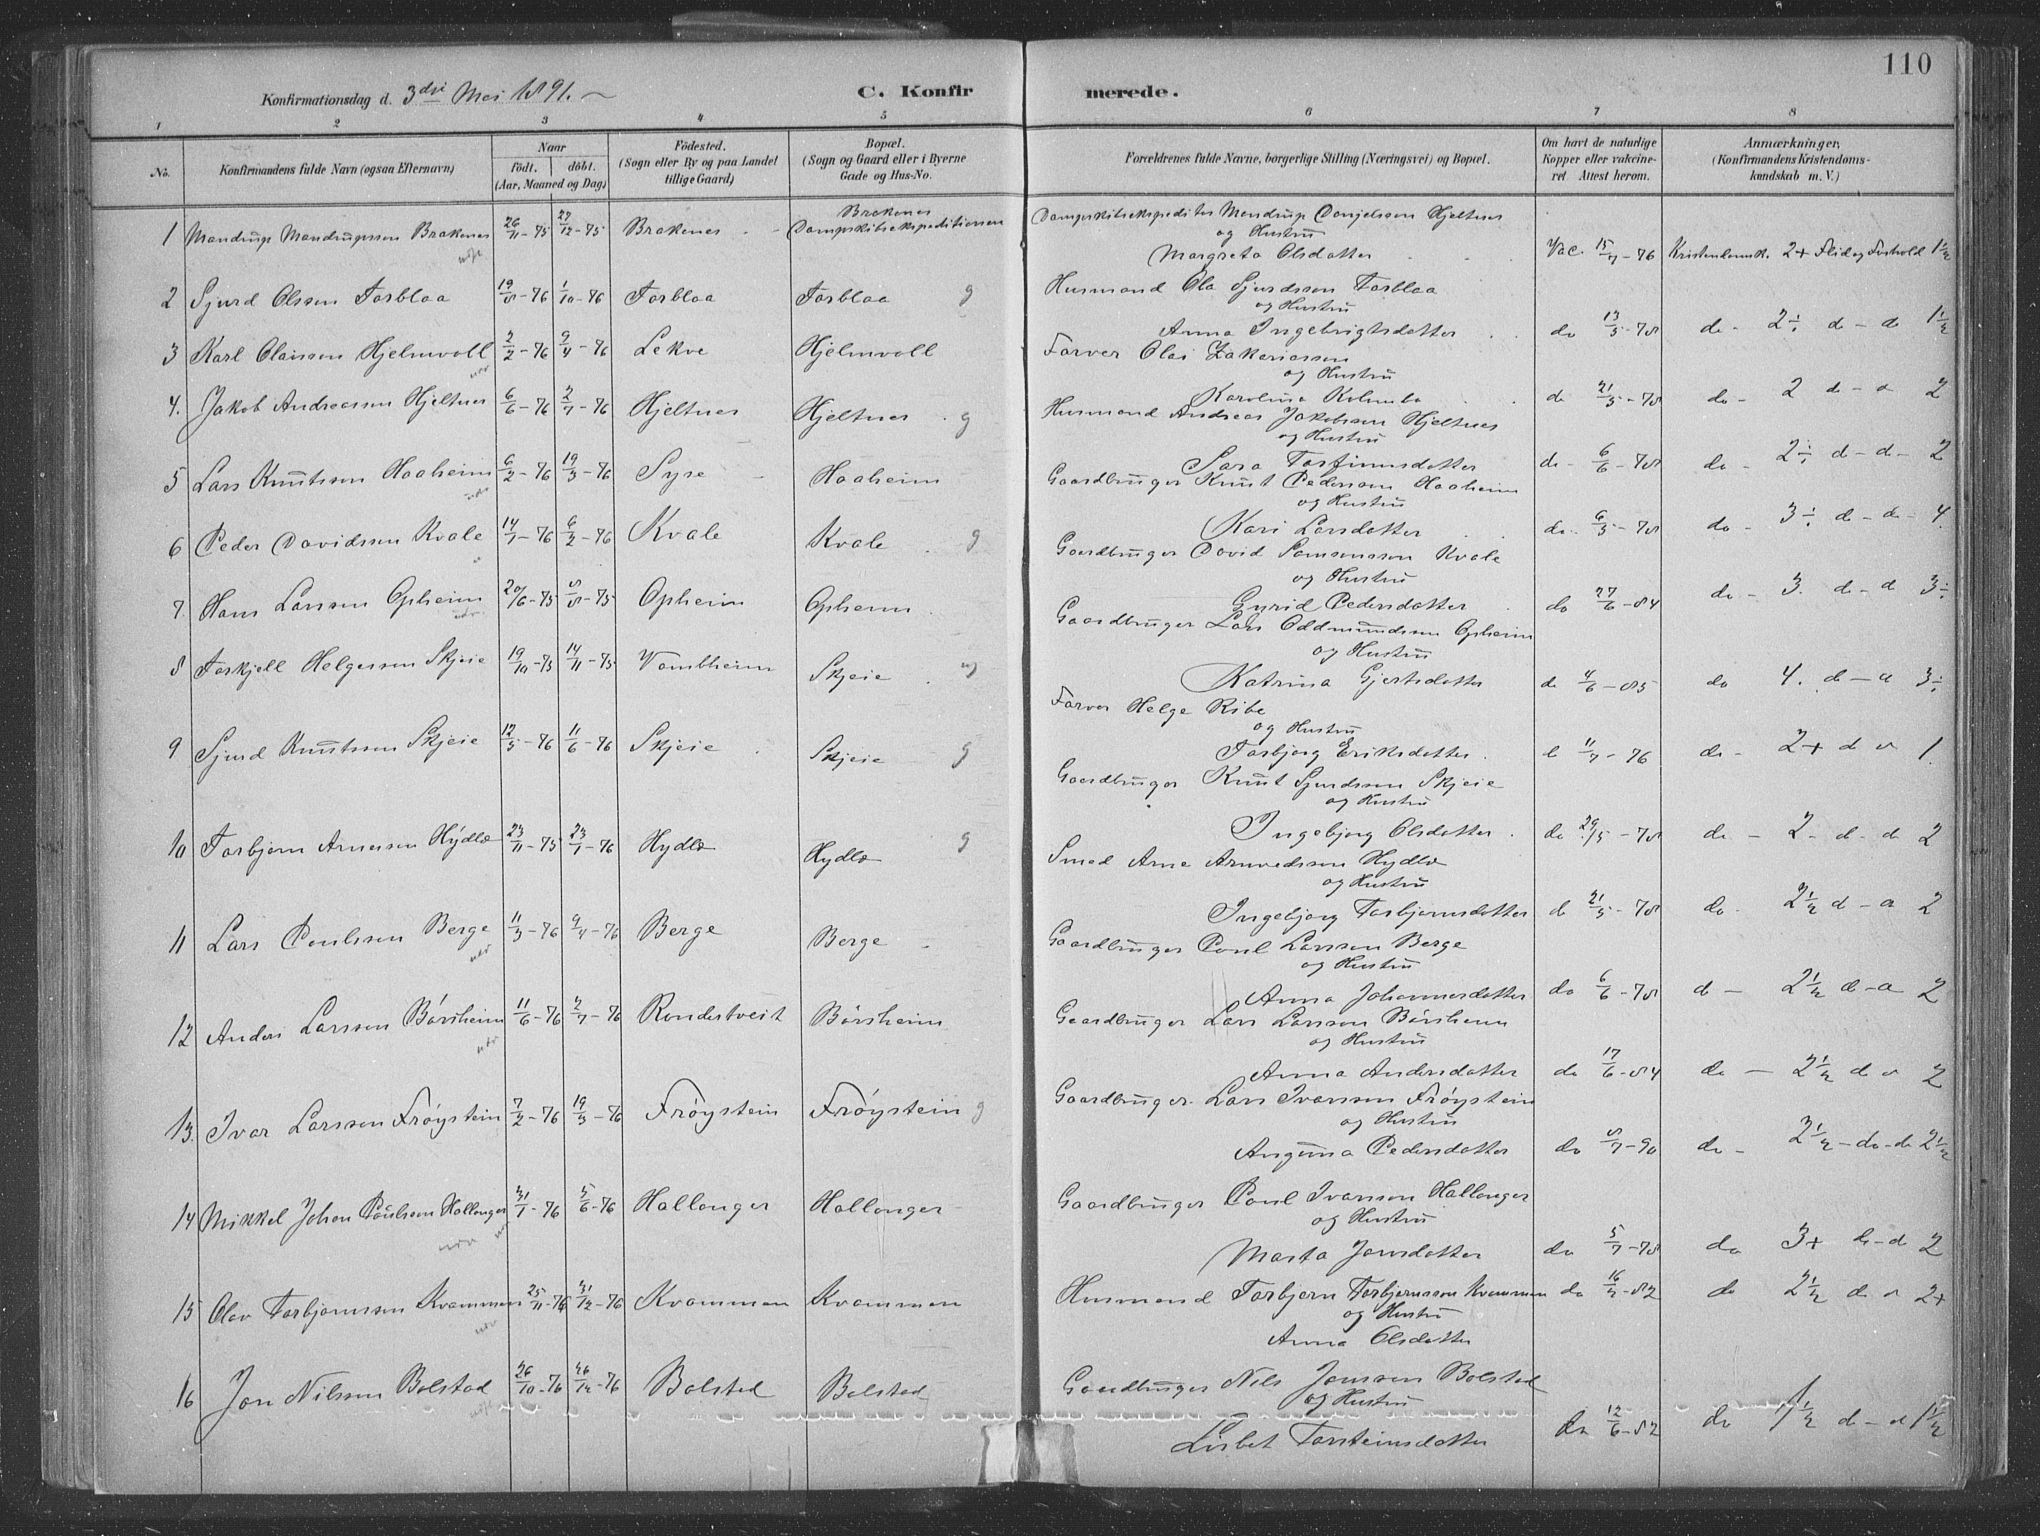 110
Konfirmationsdag d. 3die Mai 1891.
C. Konfirmerede.
1 2 3 4 5 6 7 8
No.
Konfirmandens fulde Navn (ogsaa Efternavn)
Naar
født. døbt.
(Aar, Maaned og Dag)
Fødested.
(Sogn eller By og paa Landet
tillige Gaard)
Bopæl.
(Sogn og Gaard eller i Byerne
Gade og Hus-No.
Forældrenes fulde Navne, borgerlige Stilling (Næringsvei) og Bopæl.
Om havt de naturlige
Kopper eller vakcine-
ret Attest herom.
Anmærkninger,
(Konfirmandens Kristendoms-
kundskab m. V.)
Brakenes
1 Mandrup Mandrupssen Brakenes 26/11-75 27/12-75 Brakenes Dampskibsekspeditionen Dampskibsekspeditør Mandrup Danjelssen Hjeltnes
og Hustru
Margreta Olsdatter Vac. 15/7-76 Kristendomsk. 2+ Flid og Forhold 1½
2 Sjurd Olssen Torblaa 19/8-76 1/10-76 Torblaa Torblaa g Husmand Ola Sjurdssen Torblaa
og Hustru
Anna Ingebrigtsdatter do 13/5-78 do - 2÷ d - d 1½
3 Karl Olaissen Hjelmvoll 2/2-76 9/4-76 Lekve Hjelmvoll Farver Olai Zakariassen
og Hustru
Karolina Kolumba do 21/5-78 do - 2 d - d 2
4. Jakob Andreassen Hjeltnes 6/6-76 2/7-76 Hjeltnes Hjeltnes g Husmand Andreas Jakobssen Hjeltnes
og Hustru
Sara Torfinnsdatter do - 6/6-78 do - 2÷ d - d - 2
5 Lars Knutssen Haaheim 6/2-76 19/3-76 Syse Haaheim Gaardbruger Knut Pederssen Haaheim
og Hustru
Kari Larsdatter do. 6/5-78 do - 3÷ d - d - 4.
6 Peder Davidssen Kvale 14/1-76 6/2-76 Kvale Kvale g Gaardbruger David Samsonssen Kvale
og Hustru
Gyrid Pedersdatter do 27/6-84 do - 3. d - d 3÷
7. Hans Larssen Opheim 20/6-75 8/8-75 Opheim Opheim Gaardbruger Lars Oddmundssen Opheim
og Hustru
Katrina Gjertsdatter do 4/6-85 do 4. d - d 3÷
8 Torkjell Helgessen Skjeie 19/10-75 14/11-75 Vambheim Skjeie Farver Helge Ribe
og Hustru
Torbjorg Eriksdatter 11/7-76 do - 2+ d d 1.
9 Sjurd Knutssen Skjeie 12/5-76 11/6-76 Skjeie Skjeie g Gaardbruger Knut Sjurdssen Skjeie
og Hustru
Ingebjorg Olsdatter. do 29/5-78 do - 2 - d - d 2
10 Torbjorn Arnessen Hydle 23/11-75 23/1-76 Hydle Hydle g Smed Arne Arnvedssen Hydle
og Hustru
Ingebjorg Torbjornsdatter d 21/5-78 do - 2½ d - d 2
11 Lars Poulssen Berge 11/3-76 9/4-76 Berge Berge Gaardbruger Poul Larssen Berge
og Hustru
Anna Johannesdatter do 6/6-78 d - 2½ d - d 2
12 Anders Larssen Børsheim 11/6-76 2/7-76 Rondestveit Børsheim Gaardbruger Lars Larssen Børsheim
og Hustru
Anna Andersdatter do 17/6-84 do - 2½ d d 2
13. Ivar Larssen Frøystein 7/2-76 19/3-76 Frøystein Frøystein g Gaardbruger Lars Ivarssen Frøystein
og Hustru
Anguna Pedersdatter do 8/7-90 do - 2½ - do - do 2½
14 Mikkel Johan Poulssen Hallanger 31/1-76 5/6-76 Hallanger Hallanger Gaardbruger Poul Ivarssen Hallanger
og Hustru
Marta Jonsdatter do 5/7-78 do 3+ d - d 2
15 Olav Torbjornssen Kvammen 25/11-76 31/12-76 Kvammen Kvammen Husmand Torbjorn Torbjornssen Kvammen do 16/7-82 do 2½ d d 2+
og Hustru
Anna Olsdatter
16 Jon Nilssen Bolstad 26/10-76 26/12-76 Bolstad Bolstad Gaardbruger Nils Jonssen Bolstad
og Hustru
Lisbet Torsteinsdatter do 12/6-82 do 1½ d - d 1½